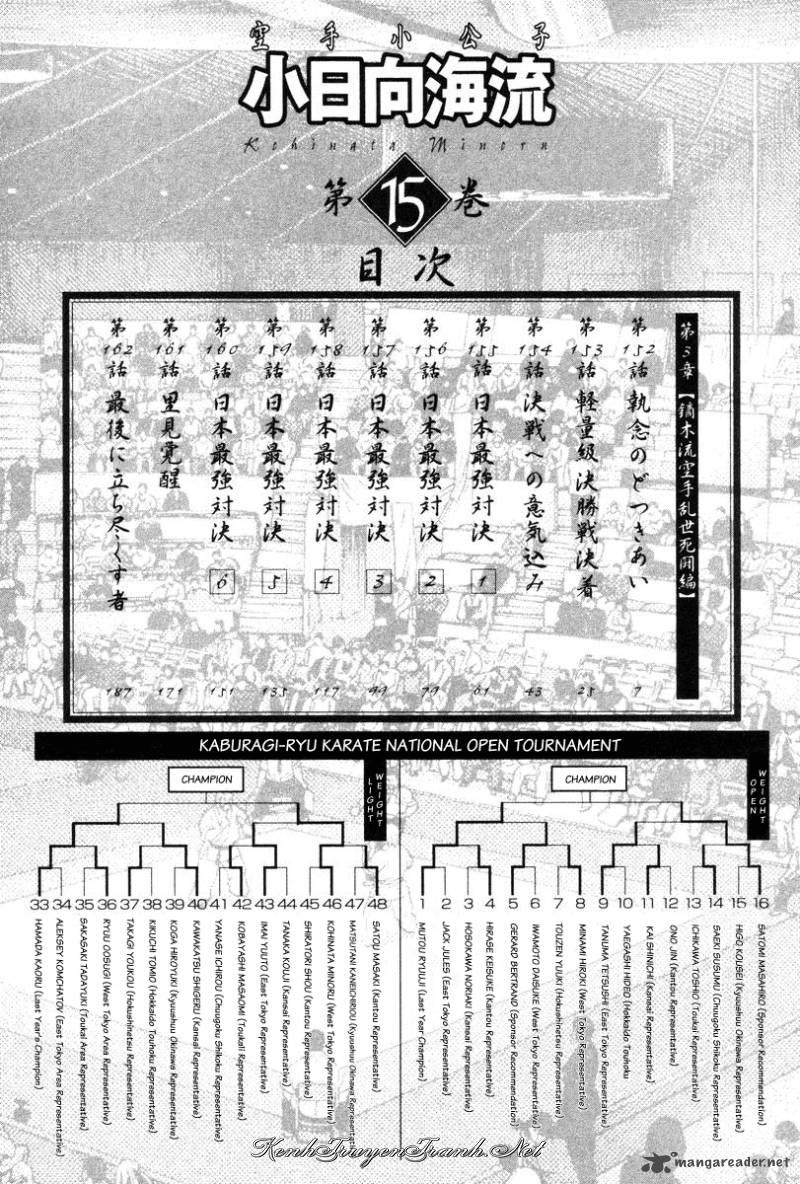 空手小公子
小日向海流
Kohinata Minoru
第15巻
目次
第5章【鏑木流空手乱世死闘編】
第152話 執念のどつきあい 7
第153話 軽量級決勝戦決着 25
第154話 決戦への意気込み 43
第155話 日本最強対決 1 61
第156話 日本最強対決 2 79
第157話 日本最強対決 3 99
第158話 日本最強対決 4 117
第159話 日本最強対決 5 135
第160話 日本最強対決 6 151
第161話 里見覚醒 171
第162話 最後に立ち尽くす者 187
KABURAGI-RYU KARATE NATIONAL OPEN TOURNAMENT
CHAMPION
LIGHT WEIGHT
33 HAMADA KAORU (Last Year's Champion)
34 ALEKSEY KOMCHATOV (East Tokyo Area Representative)
35 SAKASAKI TADAYUKI (Toukai Area Representative)
36 RYUU OOSUGI (West Tokyo Area Representative)
37 TAKAGI YOUKOU (Hokushinetsu Representative)
38 KIKUCHI TOMIO (Hokkaido Touhoku Representative)
39 KOGA HIROYUKI (Kyuushuu Okinawa Representative)
40 KAWAKATSU SHIGERU (Kansai Representative)
41 YANASE ICHIROU (Chuugoku Shikoku Representative)
42 KOBAYASHI MASAOMI (Toukai Representative)
43 IMAI YUUTO (East Tokyo Representative)
44 TANAKA KOUJI (Kansai Representative)
45 SHIRATORI SHOU (Kantou Representative)
46 KOHINATA MINORU (West Tokyo Representative)
47 MATSUTANI KANEICHIROU (Kyuushuu Okinawa Representative)
48 SATOU MASAKI (Kantou Representative)
CHAMPION
OPEN WEIGHT
1 MUTOU RYUUJI (Last Year Champion)
2 JACK JULES (East Tokyo Representative)
3 HOSOKAWA NORIAKI (Kansai Representative)
4 HIRASE KEISUKE (Kantou Representative)
5 GERARD BERTRAND (Sponsor Recommendation)
6 IWAMOTO DAISUKE (West Tokyo Representative)
7 TOUZEN YUUKI (Hokushinetsu Representative)
8 MINAMI HIROKI (West Tokyo Representative)
9 TANUMA TETSUSHI (East Tokyo Representative)
10 YAEGASHI HIDEO (Hokkaido Touhoku
11 KAI SHINICHI (Kansai Representative)
12 ONO JIN (Kantou Representative)
13 ICHIKAWA TOSHIO (Toukai Representative)
14 SAEKI SUSUMU (Chuugoku Shikoku Representative)
15 HIGO KOUSEI (Kyuushuu Okinawa Representative)
16 SATOMI MASAHIKO (Sponsor Recommendation)
KenhTruyenTranh.Net
mangareader.net